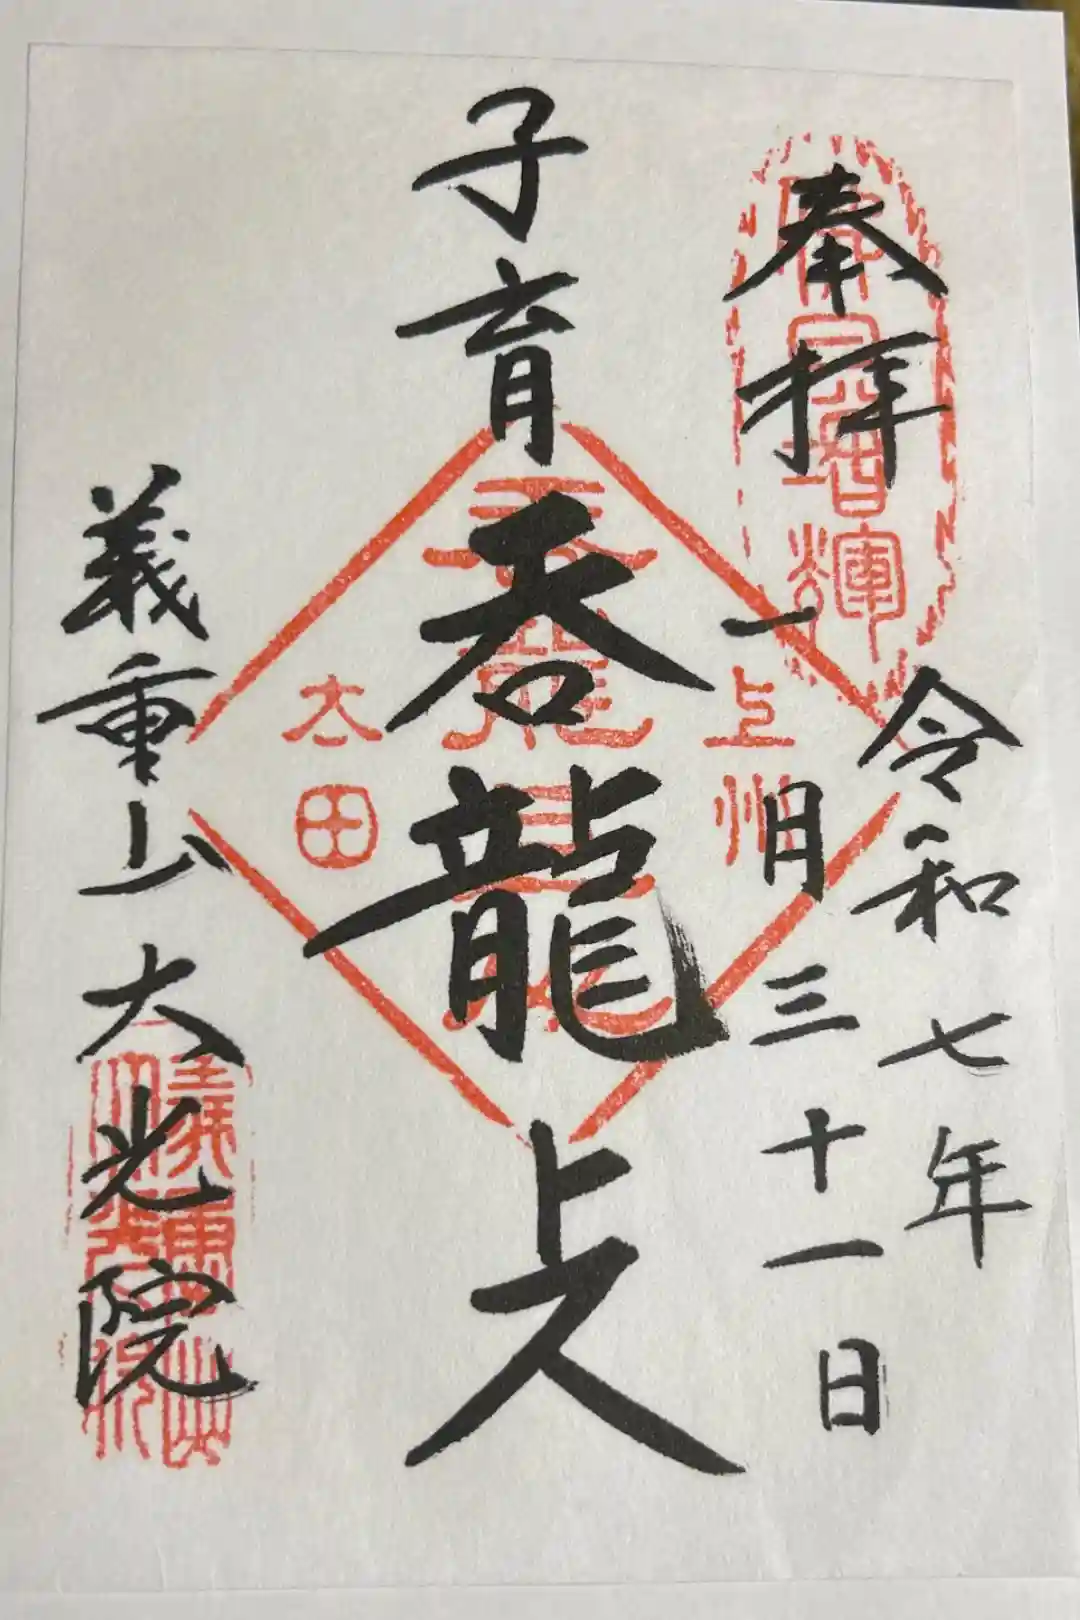 奉拝
令和七年
一月三十一日
子育
呑龍
上人
上州
太田
義重山大光院